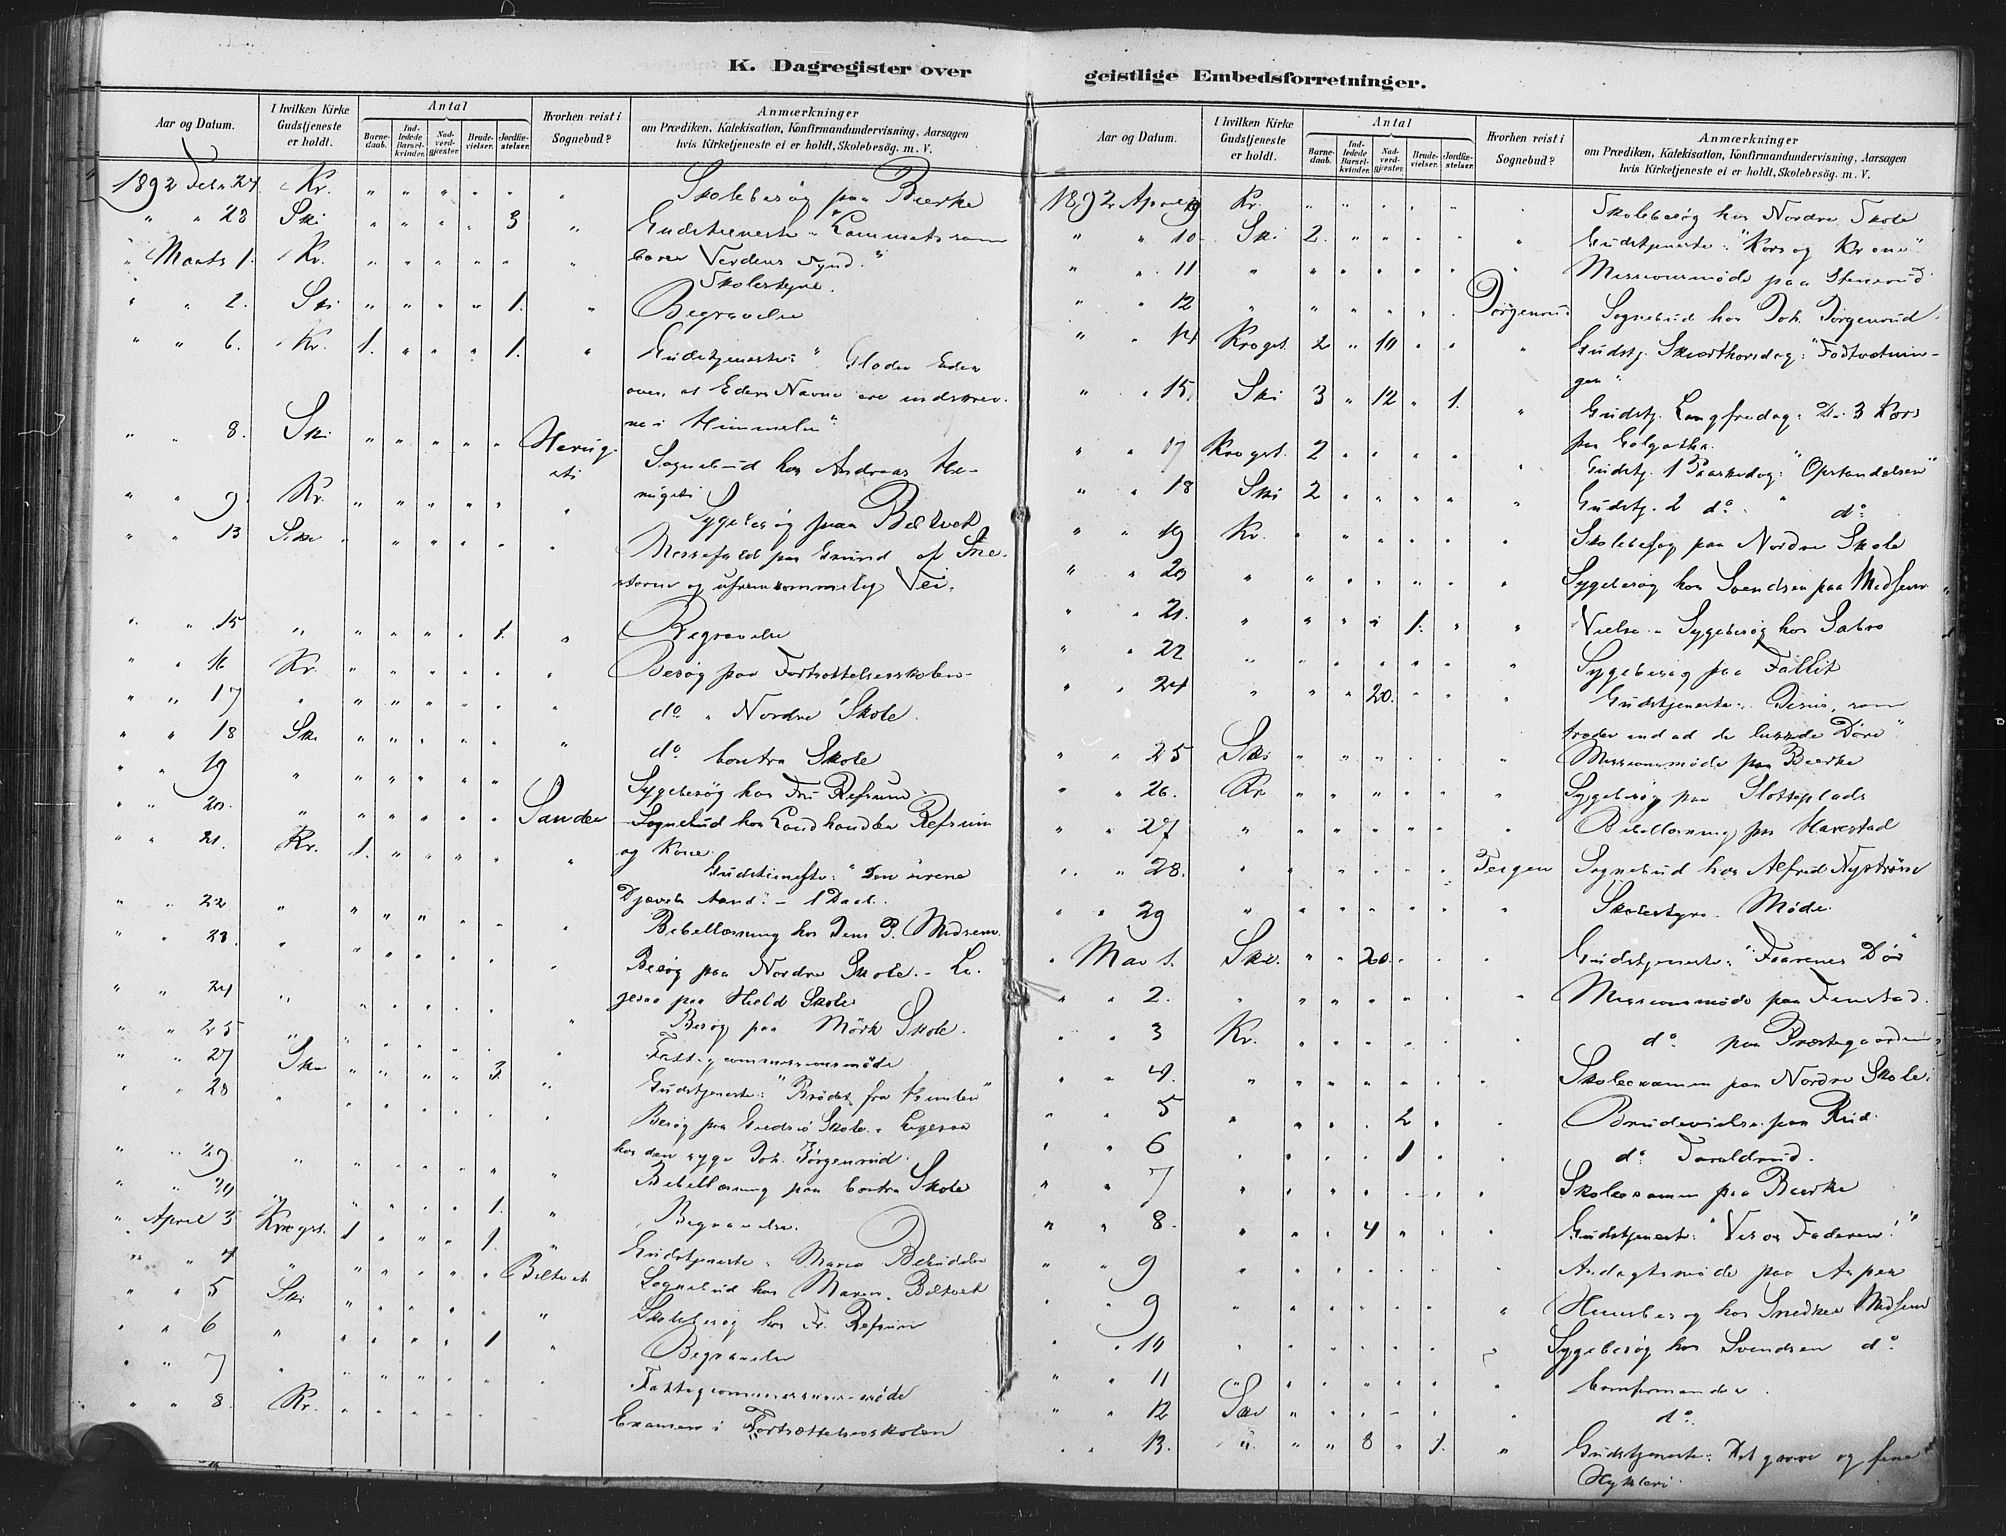 K. Dagregister over
Aar og Datum.
I hvilken Kirke Gudstjeneste er holdt.
Antal
Barne-daab.
Ind-ledede Barsel-kvinder.
Nad-verd-gjester.
Brude-vielser.
Jordfæ-stelser.
Hvorhen reist i Sognebud?
Anmærkninger
om Prædiken, Katekisation, Konfirmandundervisning, Aarsagen
hvis Kirketjeneste ei er holdt, Skolebesög. m. V.
1892 Febr. 27 Kr. " " " " " " Skolebesøg paa Bierke
" " 28 Ski " " " " 3 " Gudstieneste "Lammet som
" Marts 1. Kr. " " " " " " bærer Verdens Synd."
Skolestyre.
" " 2. Ski " " " " 1. " Begravelse
" " 6. Kr. 1. " " " 1. " Gudstjeneste: " Glæder Eder
over, at Eders Navne ere indskrev-
ne i Himmelen"
" " 8. Ski " " " " " Sognebud hos Andreas
" " 9. Kr. " " " " " " Sygebesøg paa Bøltvet
" " 13 Ski " " " " " " Messefald paa Grund af Sne-
storm og ufremkommelig Vei.
" " 15 " " " " " 1. " Begravelse
" " 16 Kr. " " " " " " Besøg paa Fortsættelsesskolen
" " 17 " " " " " " " do " Nordre Skole.
" " 18 Ski " " " " " " do Contra Skole
" " 19 " " " " " " " Sygebesøg hos Fru Refsum.
" " 20. " " " " " " Sander Sognebud hos Landhandler Refsum
og Kone.
" " 21. Kr. 1. " " " " " Gudstieneste: " Den urene
Djævels Aand". - 1 Daab.
" " 22 " " " " " " " Bibellæsning hos Jens P. Midsem
" " 23. " " " " " " " Besøg paa Nordre Skole. - Li-
gesaa paa Hield Skole
" " 24 " " " " " " " Besøg paa Mörk Skole.
" " 25 " " " " " " " Fattigcommissionsmøde
" " 27 Ski " " " " 3. " Gudstjeneste: " Brødet fra Himlen"
" " 28 " " " " " " " Besøg paa Skole. Ligesaa
hos den syge Joh. Jørgenrud.
" " 29 " " " " " " " Bibellæsning paa Contra Skole
" " " " " " " 1. " Begravelse.
" April 3 Krogst. 1 " " " 1. " Gudstjeneste " Maria Bebudelse
" " 4 " " " " " " Bøltvet Sognebud hos Maren Bøltvet
" " 5 Ski " " " " " " Skolebesøg hos Fr. Refsum
" " 6 " " " " " 1 " Begravelse
" " 7 " " " " " " " Fattigcommissionsmøde
" " 8. Kr. " " " " " " Examen i Fortsættelsesskolen
geistlige Embedsforretninger.
Aar og Datum.
I hvilken Kirke Gudstjeneste er holdt.
Antal
Barne-daab.
Ind-ledede Barsel-kvinder.
Nad-verd-gjester.
Brude-vielser.
Jordfæ-stelser.
Hvorhen reist i Sognebud?
Anmærkninger
om Prædiken, Katekisation, Konfirmandundervisning, Aarsagen
hvis Kirketjeneste ei er holdt, Skolebesög. m. V.
1892 April 9 Kr. " " " " " " Skolebesøg hos Nordre Skole
" " 10 Ski 2. " " " " " Gudstjeneste: "Kors og Krone"
" " 11 " " " " " " " Missionsmøde paa Stensrud
" " 12 " " " " " " Jørgenrud Sognebud hos Joh. Jørgenrud.
" " 14 Krogst. 2 " 10 " " " Gudstj. Skiærthorsdag: "Fodtvætnin-
gen".
" " 15. Ski 3 " 12 " 1. " Gudstj. Langfredag: De 3 Kors
paa Golgatha.
" " 17 Krogst. 2 " " " " " Gudstj. 1 Paaskedag: "Opstandelsen"
" " 18 Ski 2 " " " " " Gudstj. 2 do " do
" " 19 Kr. " " " " " " Skolebesøg paa Nordre Skole
" " 20 " " " " " " " Sygebesøg hos Svendsen paa Midsem
" " 21. " " " " 1. " " Vielse. Sygebesøg hos Sabro
" " 22 " " " " " " " Sygebesøg paa Fallit
" " 24 " " " 20. " " " Gudstjeneste: Jesus, som
træder ind ad de lukkede Døre"
" " 25 Ski " " " " " " Missionsmøde paa Bierke
" " 26. Kr " " " " " " Sygebesøg paa Slottsplads
" " 27 " " " " " " " Bibellæsning paa Harestad
" " 28. " " " " " " Teigen Sognebud hos Alfred Nystrøm
" " 29 " " " " " " " Skolestyre. Møde.
" Mai 1. Ski. " " 20. " " " Gudstjeneste: "Faarenes Dør"
" " 2. " " " " " " " Missionsmøde paa Finstad.
" " 3 Kr. " " " " " " do paa Præstegaarden
" " 4. " " " " " " " Skoleexamen paa Nordre Skole.
" " 5 " " " " 2 " " Brudevielse paa Rud.
" " 6 " " " " 1 " " do Taraldrud.
" " 7 " " " " " " " Skoleexamen paa Bierke
" " 8. " " " 4 " " " Gudstjeneste: "Vis os Faderen!"
" " 9 " " " " " " " Andagtsmøde paa Asper
" " 9 " " " " " " " Huusbesøg hos Snedker Midsem
" " 10 " " " " " " " Sygebesøg hos Svendsen do
" " 11 " " " " " " " Confirmander.
" " 12 Ski " " " " " " do.
" " 13. " " " 8 " 1. " Gudstjeneste: Det grove og fine
Hykleri.